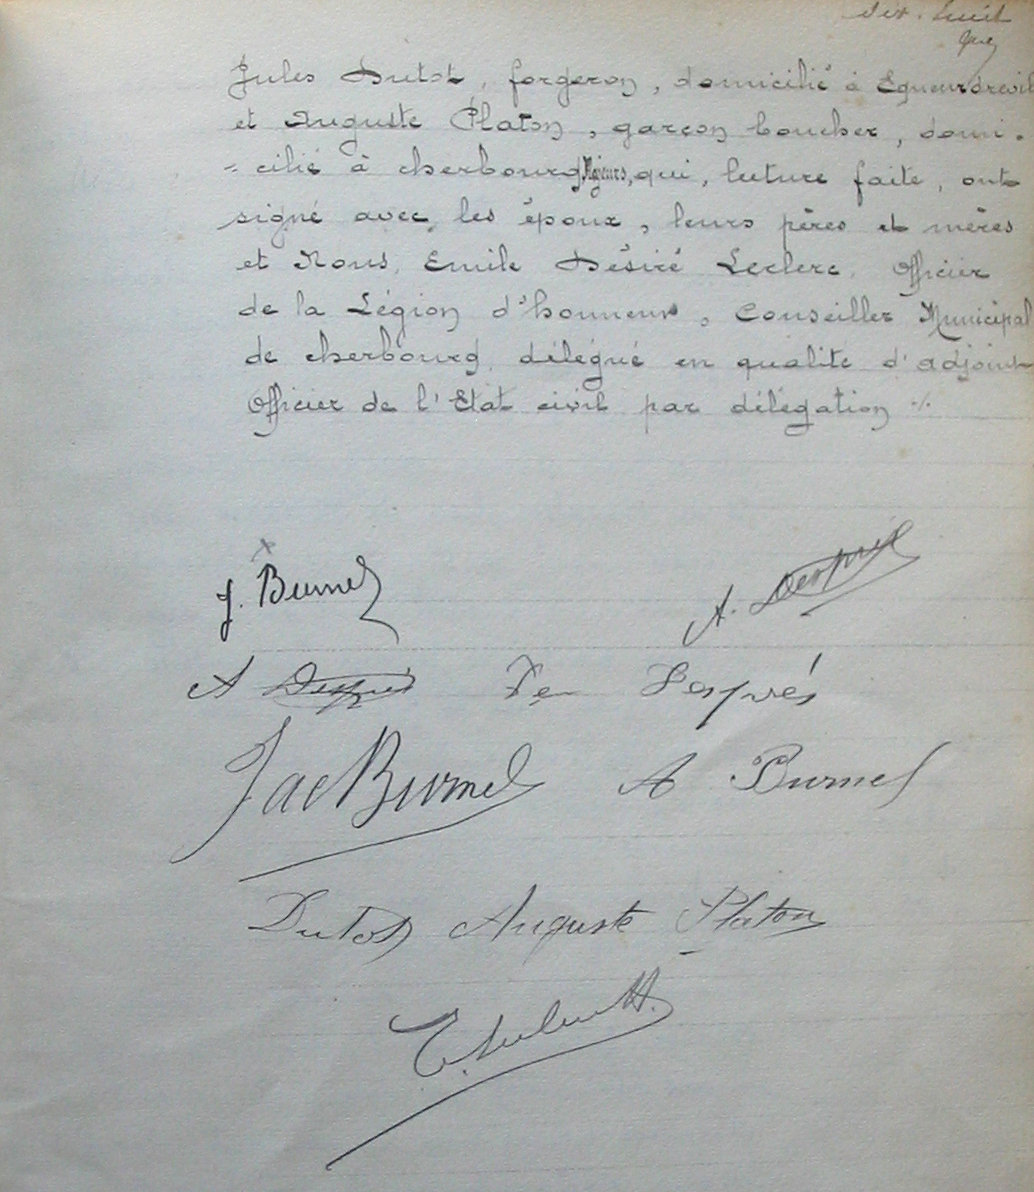 Jules Dutot, forgeron, domicilié à Equeurdrevil
et Auguste Platon, garçon boucher, domi-
= cilié à cherbourg, Majeurs, qui, lecture faite, ont
signé avec les époux, leurs pères et mères
et Nous, Emile Désiré Leclerc, Officier
de la Légion d'honneur, Conseiller Municipal
de cherbourg délégué en qualité d'adjoint
Officier de l'Etat civil par délégation ./.
J. Burnel
A. Desprès
A Desprès Fe Desprès
Jac Burnel A Burnel
Dutot Auguste Platon